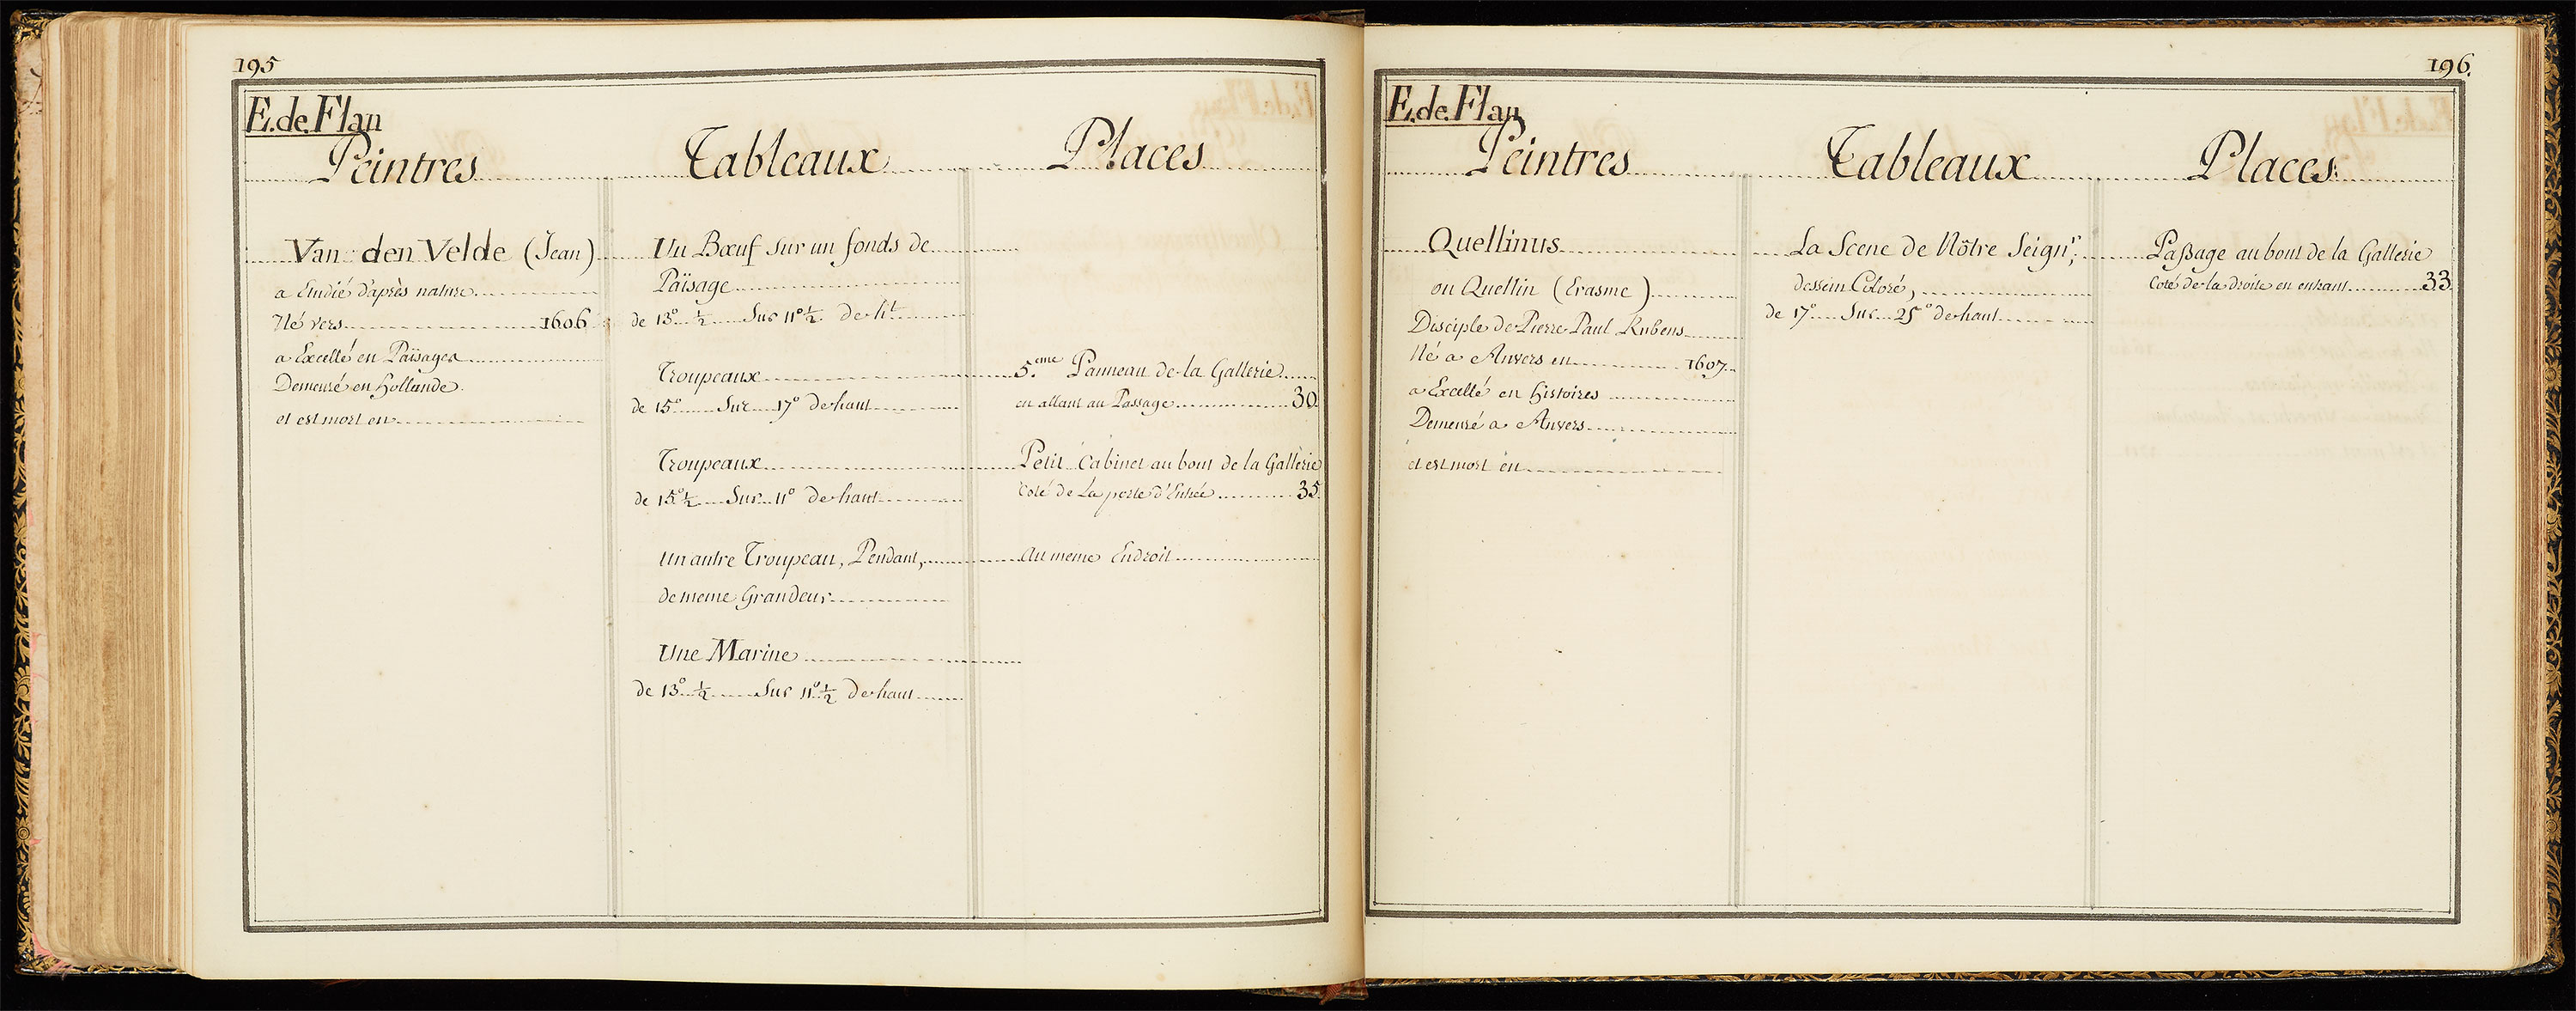 195
E. de Flan
Peintres
Tableaux
Places
Van den Velde (Jean)
a Etudié d'après nature
Né vers 1606
a Excellé en Païsages
Demeuré en Hollande
et est mort en
Un Bœuf sur un fonds de
Païsage
de 13° ½ Sur 11° ½ de ht
Troupeaux
de 15° Sur 17° de haut
Troupeaux
de 15° ½ Sur 11° de haut
Un autre Troupeau, Pendant,
de meme Grandeur
Une Marine
de 13° ½ Sur 11° ½ de haut
5.eme Panneau de la Gallerie
en allant au Passage 30
Petit Cabinet au bout de la Gallerie
Coté de La porte d'Entrée 35
Au meme Endroit
196.
E. de Flan
Peintres
Tableaux
Places
Quellinus
ou Quellin (Erasme)
Disciple de Pierre Paul Rubens
Né a Anvers en 1607
a Excellé en histoires
Demeuré a Anvers
et est mort en
La Scene de Nôtre Seignr;
dessein Coloré,
de 17° Sur 25° de haut
Passage au bout de la Gallerie
Coté de la droite en entrant 33